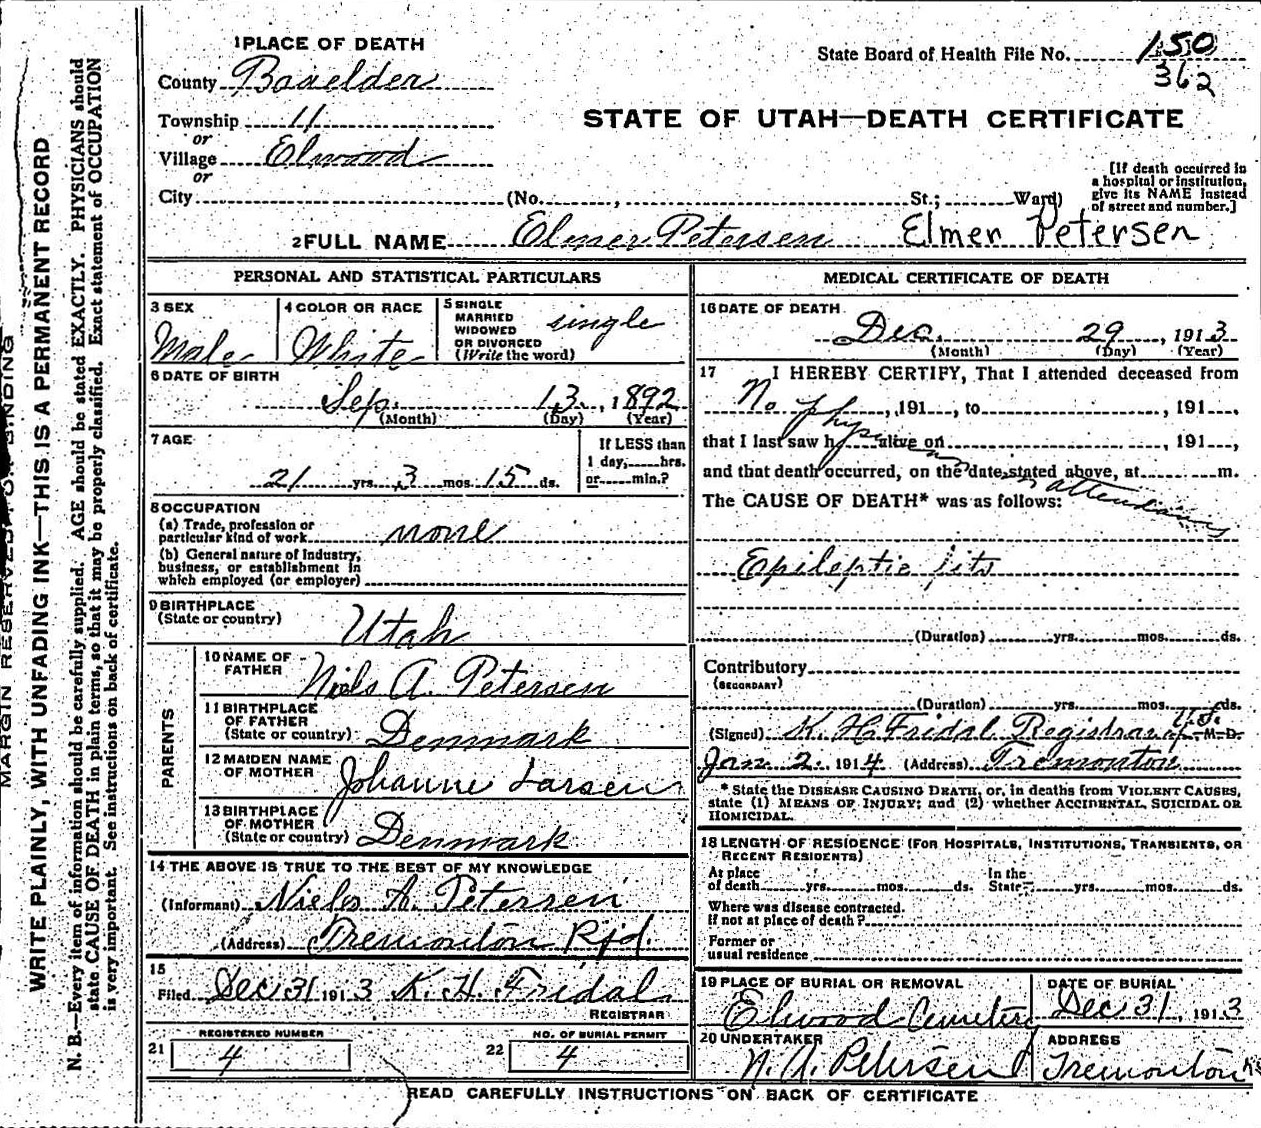 MARGIN RESERVED FOR BINDING
WRITE PLAINLY, WITH UNFADING INK—THIS IS A PERMANENT RECORD
N. B.—Every item of information should be carefully supplied. AGE should be stated EXACTLY. PHYSICIANS should
state CAUSE OF DEATH in plain terms, so that it may be properly classified. Exact statement of OCCUPATION
is very important. See instructions on back of certificate.
1 PLACE OF DEATH
County Boxelder
Township 11
or
Village Elwood
or
City (No. , St.; Ward)
State Board of Health File No. 150
362
STATE OF UTAH—DEATH CERTIFICATE
[If death occurred in
a hospital or institution,
give its NAME instead
of street and number.]
2 FULL NAME Elmer Petersen Elmer Petersen
PERSONAL AND STATISTICAL PARTICULARS
3 SEX
Male
4 COLOR OR RACE
White
5 SINGLE
MARRIED
WIDOWED
OR DIVORCED
(Write the word)
single
6 DATE OF BIRTH
Sep. 13, 1892
(Month) (Day) (Year)
7 AGE
21 yrs. 3 mos. 15 ds.
If LESS than
1 day, hrs.
or min.?
8 OCCUPATION
(a) Trade, profession or
particular kind of work none
(b) General nature of Industry,
business, or establishment in
which employed (or employer)
9 BIRTHPLACE
(State or country)
Utah
PARENTS
10 NAME OF
FATHER
Niels A. Petersen
11 BIRTHPLACE
OF FATHER
(State or country)
Denmark
12 MAIDEN NAME
OF MOTHER
Johanne Larsen
13 BIRTHPLACE
OF MOTHER
(State or country)
Denmark
14 THE ABOVE IS TRUE TO THE BEST OF MY KNOWLEDGE
(Informant) Niels A. Petersen
(Address) Tremonton Rfd.
15
Filed Dec 31 1913 K. H. Fridal
REGISTRAR
REGISTERED NUMBER
21 4
NO. OF BURIAL PERMIT
22 4
MEDICAL CERTIFICATE OF DEATH
16 DATE OF DEATH
Dec. 29, 1913
(Month) (Day) (Year)
17 I HEREBY CERTIFY, That I attended deceased from
, 191 , to , 191 ,
that I last saw h alive on , 191 ,
and that death occurred, on the date stated above, at m.
No physician attending
The CAUSE OF DEATH* was as follows:
Epileptic fits
(Duration) yrs. mos. ds.
Contributory
(SECONDARY)
(Duration) yrs. mos. ds.
(Signed) K. H. Fridal Registrar M. D.
Jan 2. 1914 (Address) Tremonton
* State the DISEASE CAUSING DEATH, or, in deaths from VIOLENT CAUSES,
state (1) MEANS OF INJURY; and (2) whether ACCIDENTAL, SUICIDAL OR
HOMICIDAL.
18 LENGTH OF RESIDENCE (FOR HOSPITALS, INSTITUTIONS, TRANSIENTS, OR
RECENT RESIDENTS)
At place
of death yrs. mos. ds.
In the
State yrs. mos. ds.
Where was disease contracted.
If not at place of death?
Former or
usual residence
19 PLACE OF BURIAL OR REMOVAL
Elwood Cemetery
DATE OF BURIAL
Dec 31, 1913
20 UNDERTAKER
N. A. Petersen
ADDRESS
Tremonton
READ CAREFULLY INSTRUCTIONS ON BACK OF CERTIFICATE